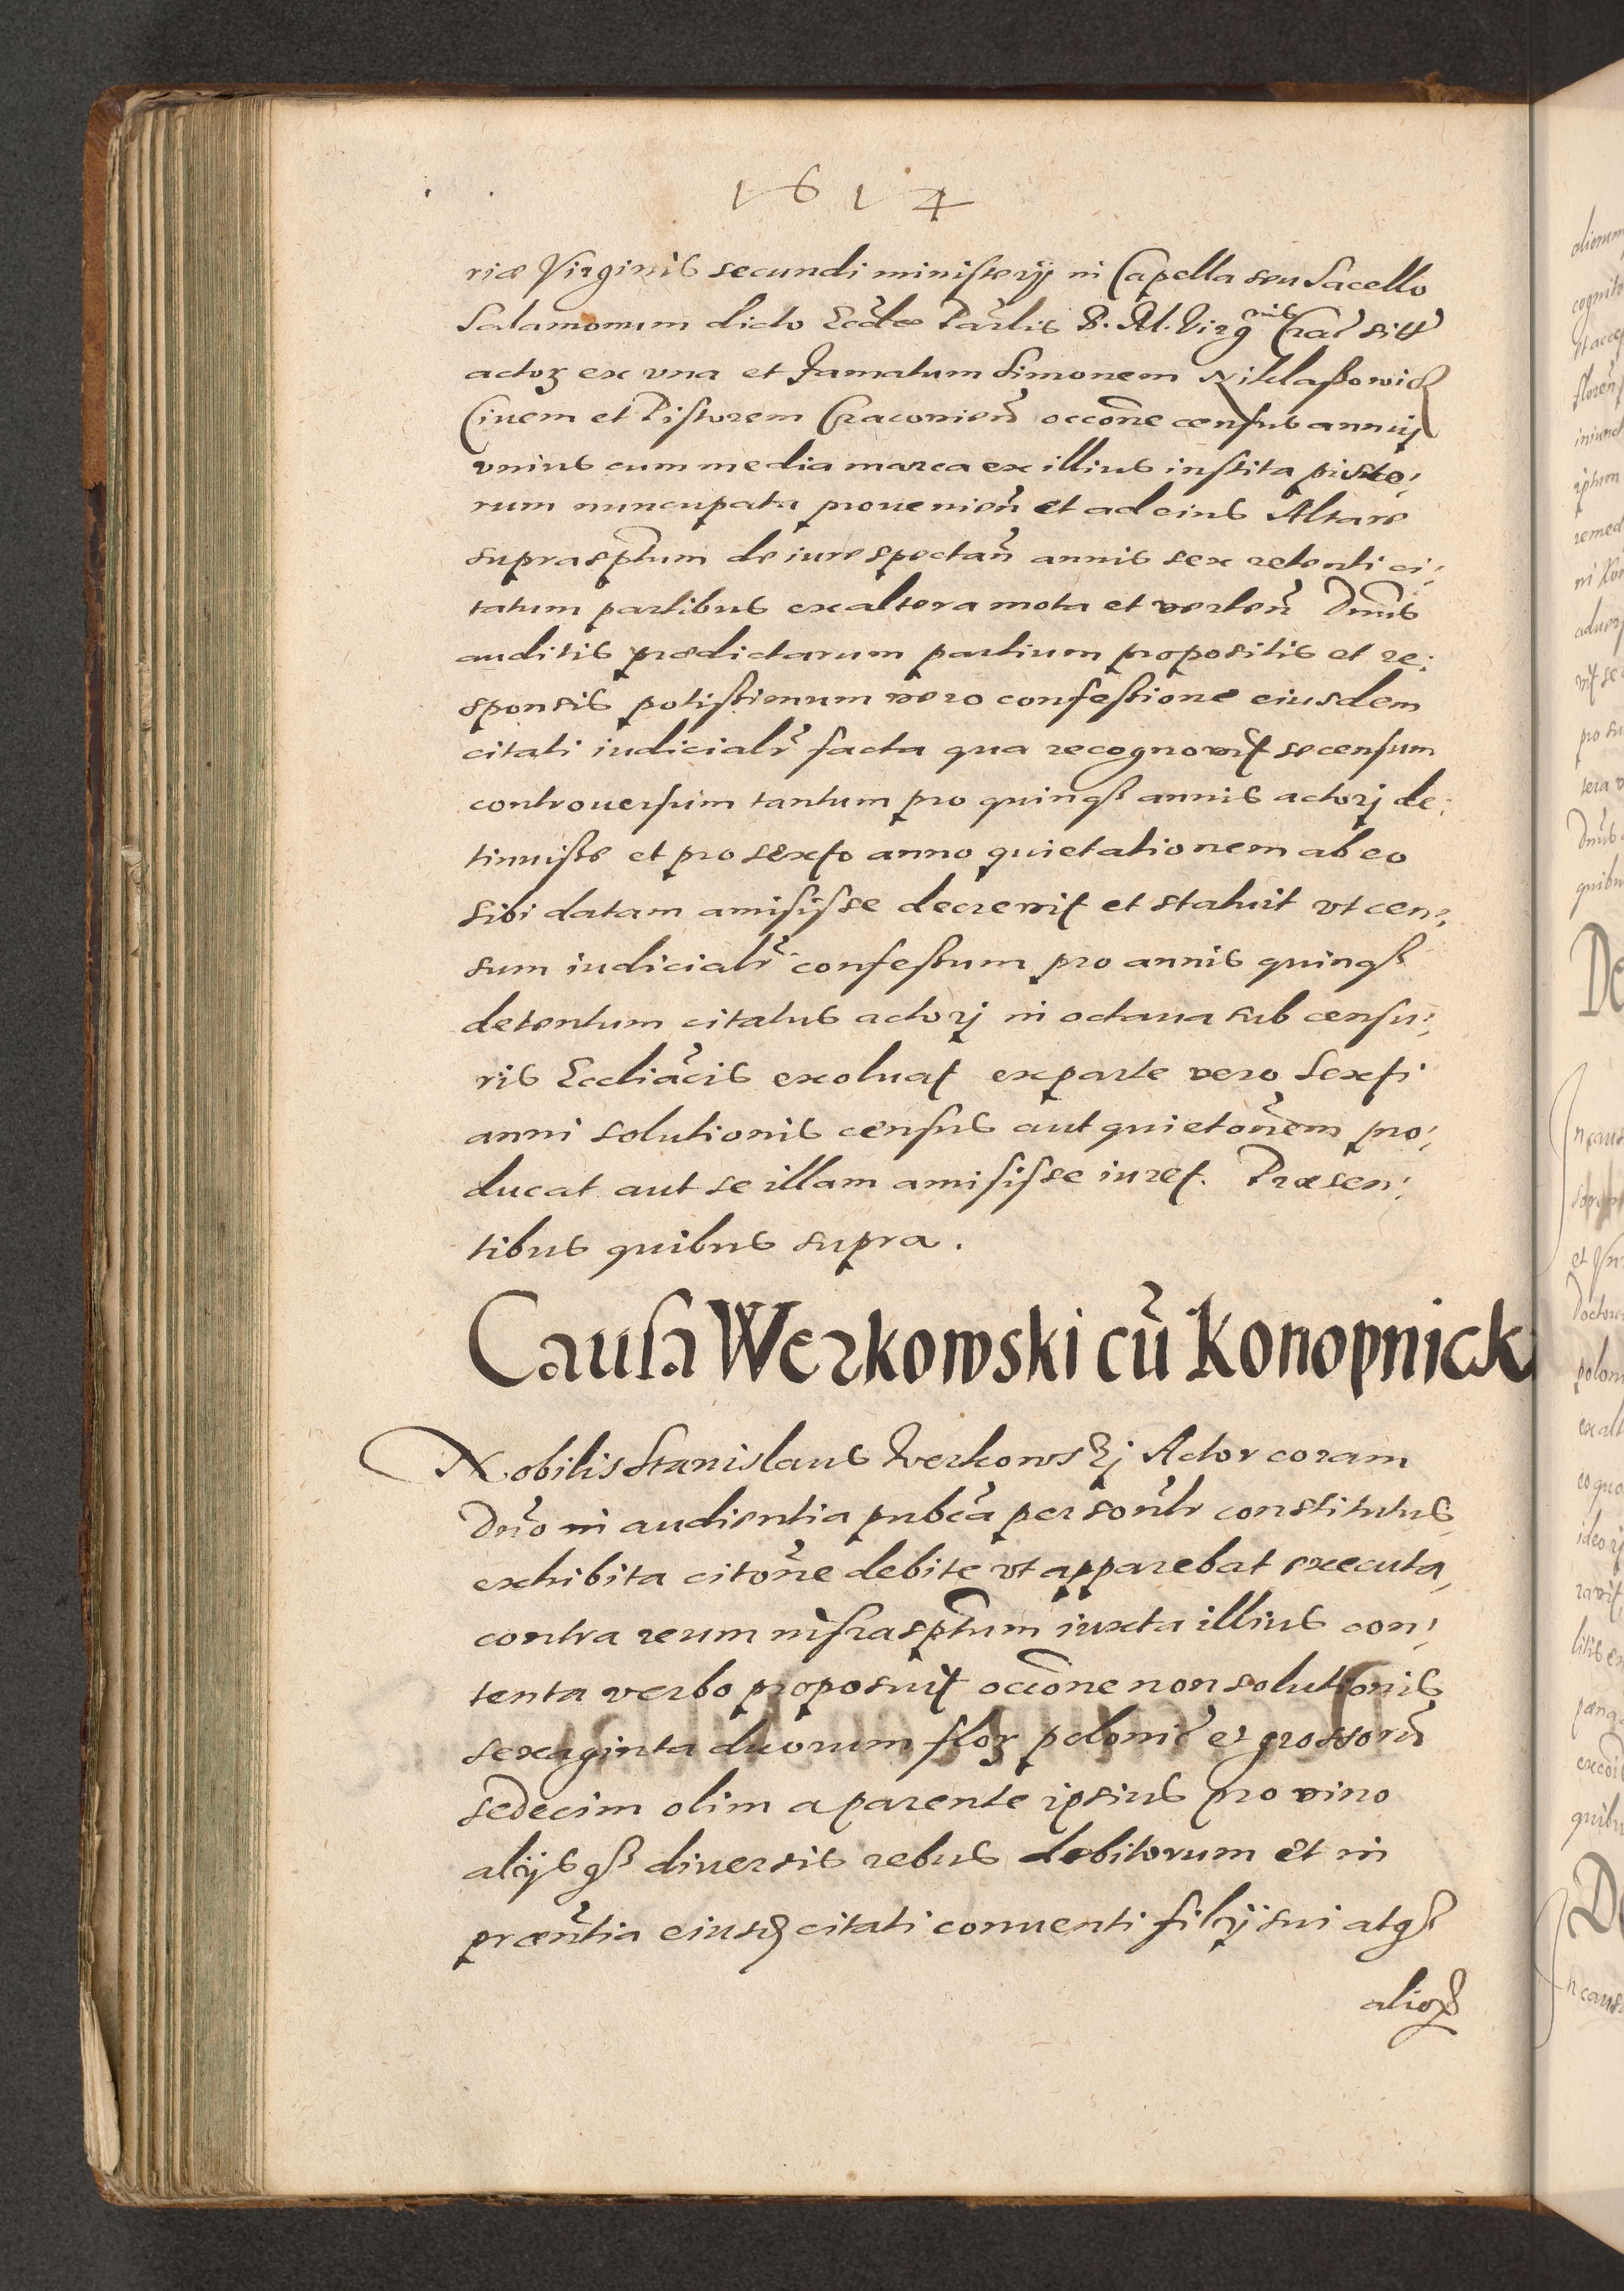 1614
riæ Virginis secundi ministerij in Capella seu Sacello
Salamonum dicto Eccl̃æ Par̃lis B. M. Virg̃nis Crac̃ sit̃
actor̃ ex vna et famatum Simonem Niklaßowicz
Ciuem et Pistorem Cracovien̄ occõne census annui
vnius cum media marca ex illius instita pisto:
rum nuncupata prouenien̄ et ad eius Altare
suprasp̃tum de iure spectan̄ annis sex retenti ci:
tatum partibus ex altera mota et verten̄ Dnus
auditis prædictarum partium propositis et re:
sponsis potissimum vero confessione eiusdem
citati iudicialr̃ facta qua recognovit se censum
controuersum tantum pro quinqꝫ annis actorj de:
tinuisse et pro sexto anno quietationem ab eo
sibi datam amisisse decrevit et statuit vt cen:
sum iudicialr̃ confessum pro annis quinqꝫ
detentum citatus actorj in octaua sub censu:
ris Eccliãcis exoluat ex parte vero sexti
anni solutionis census aut quietõnem pro:
ducat aut se illam amisisse iuret. Præsen:
tibus quibus supra.
Causa Werkowski cũ Konopnick
Nobilis Stanislaus Werkowskj Actor coram
Dño in audientia pubcã persoñlr constitutus
exhibita citoñe debite vt apparebat executa,
contra reum infrasp̃tum iuxta illius con:
tenta verbo proposuit occiõne non solutionis
sexaginta duorum flor̃ polonic̃ et grossorũ
sedecim olim a parente ipsius pro vino
alijsqꝫ diuersis rebus debitorum et in
præñtia eiusd̃ citati conuenti filij sui atqꝫ
alior̃